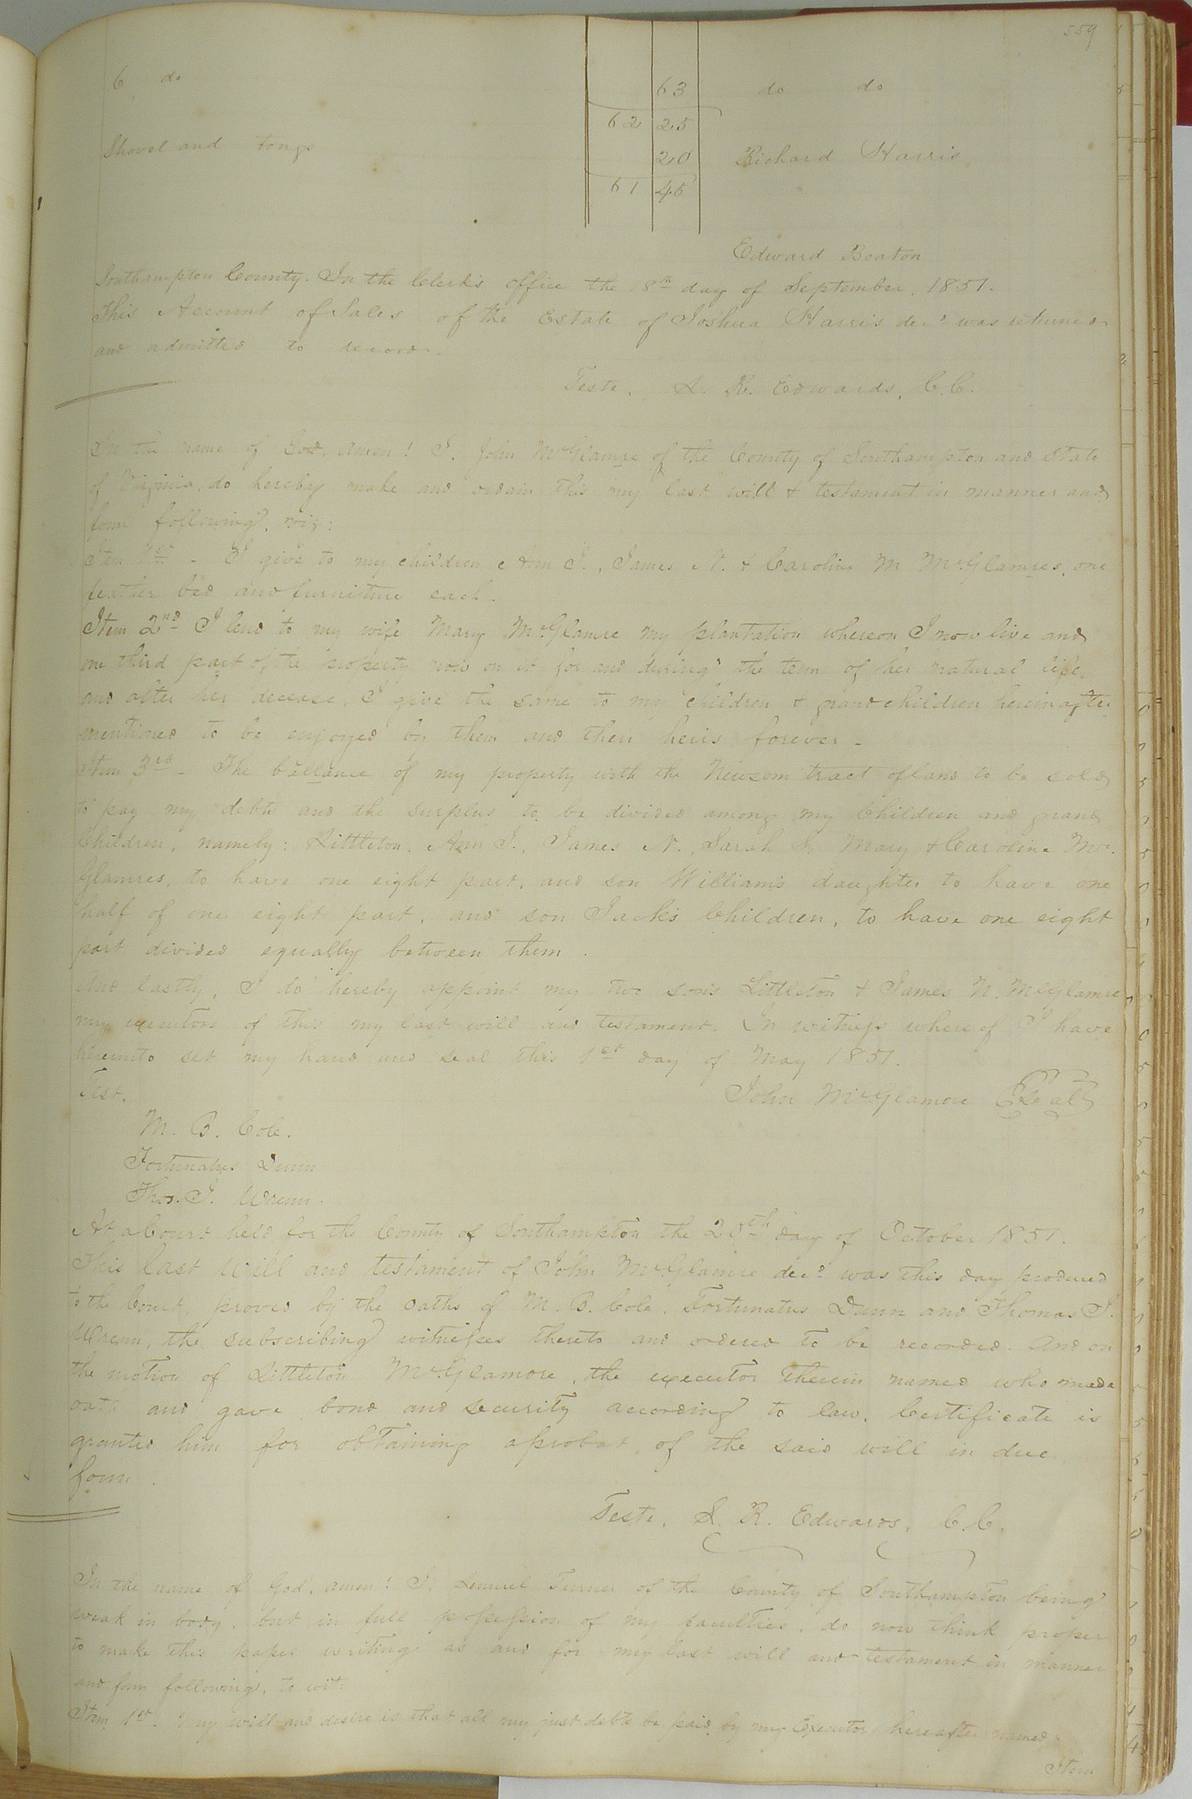 559
6 do 63 do do
62 25
Shovel and tongs 20 Richard Harris
61 45
Edward Beaton
Southampton County. In the Clerk's office the 8th day of September, 1851.
This Account of Sales of the Estate of Joshua Harris decd was returned
and admitted to record.
Teste, L. R. Edwards, C.C.
In the name of God, amen! I, John McGlamre of the County of Southampton and State
of Virginia, do hereby make and ordain this my last will & testament in manner and
form following, viz:
Item 1st - I give to my children Ann J., James N. & Caroline M McGlamres, one
feather bed and furniture each.
Item 2nd I lend to my wife Mary McGlamre my plantation whereon I now live and
one third part of the property now on it for and during the term of her natural life,
and after her decease, I give the same to my children & grandchildren hereinafter
mentioned to be enjoyed by them and their heirs forever -
Item 3rd - The ballance of my property with the Newsom tract of land to be sold
to pay my debts and the surplus to be divided among my Children and grand
Children, namely: Littleton, Ann J., James N., Sarah Mary & Caroline Mc
Glamres, to have one eight part, and son William's daughter to have one
half of one eight part, and son Jack's Children, to have one eight
part divided equally between them.
And lastly, I do hereby appoint my two sons Littleton & James N. McGlamre
my executors of this my last will and testament. In witness whereof I have
hereunto set my hand and seal this 1st day of May 1851.
Test. John McGlamore Seal
M. B. Cole.
Fortunatus Dunn
Thos. J. Wrenn.
At a Court held for the County of Southampton the 20th day of October 1851.
This last Will and testament of John McGlamre decd was this day produced
to the Court, proved by the oaths of M. B. Cole, Fortunatus Dunn and Thomas J.
Wrenn, the subscribing witnesses thereto and ordered to be recorded. And on
the motion of Littleton McGlamore, the executor therein named who made
oath and gave bond and security according to law. Certificate is
granted him for obtaining a probat, of the said will in due
form.
Teste, L. R. Edwards, C.C.
In the name of God, amen! I, Lemuel Turner of the County of Southampton being
weak in body, but in full possession of my faculties, do now think proper
to make this paper writing as and for my last will and testament in manner
and form following, to wit:
Item 1st. My will and desire is that all my just debts be paid by my Executor hereafter named.
Item